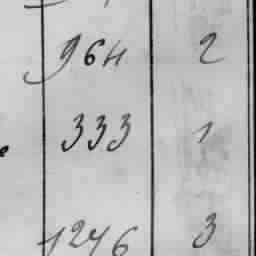 964 2
333 1
1246 3